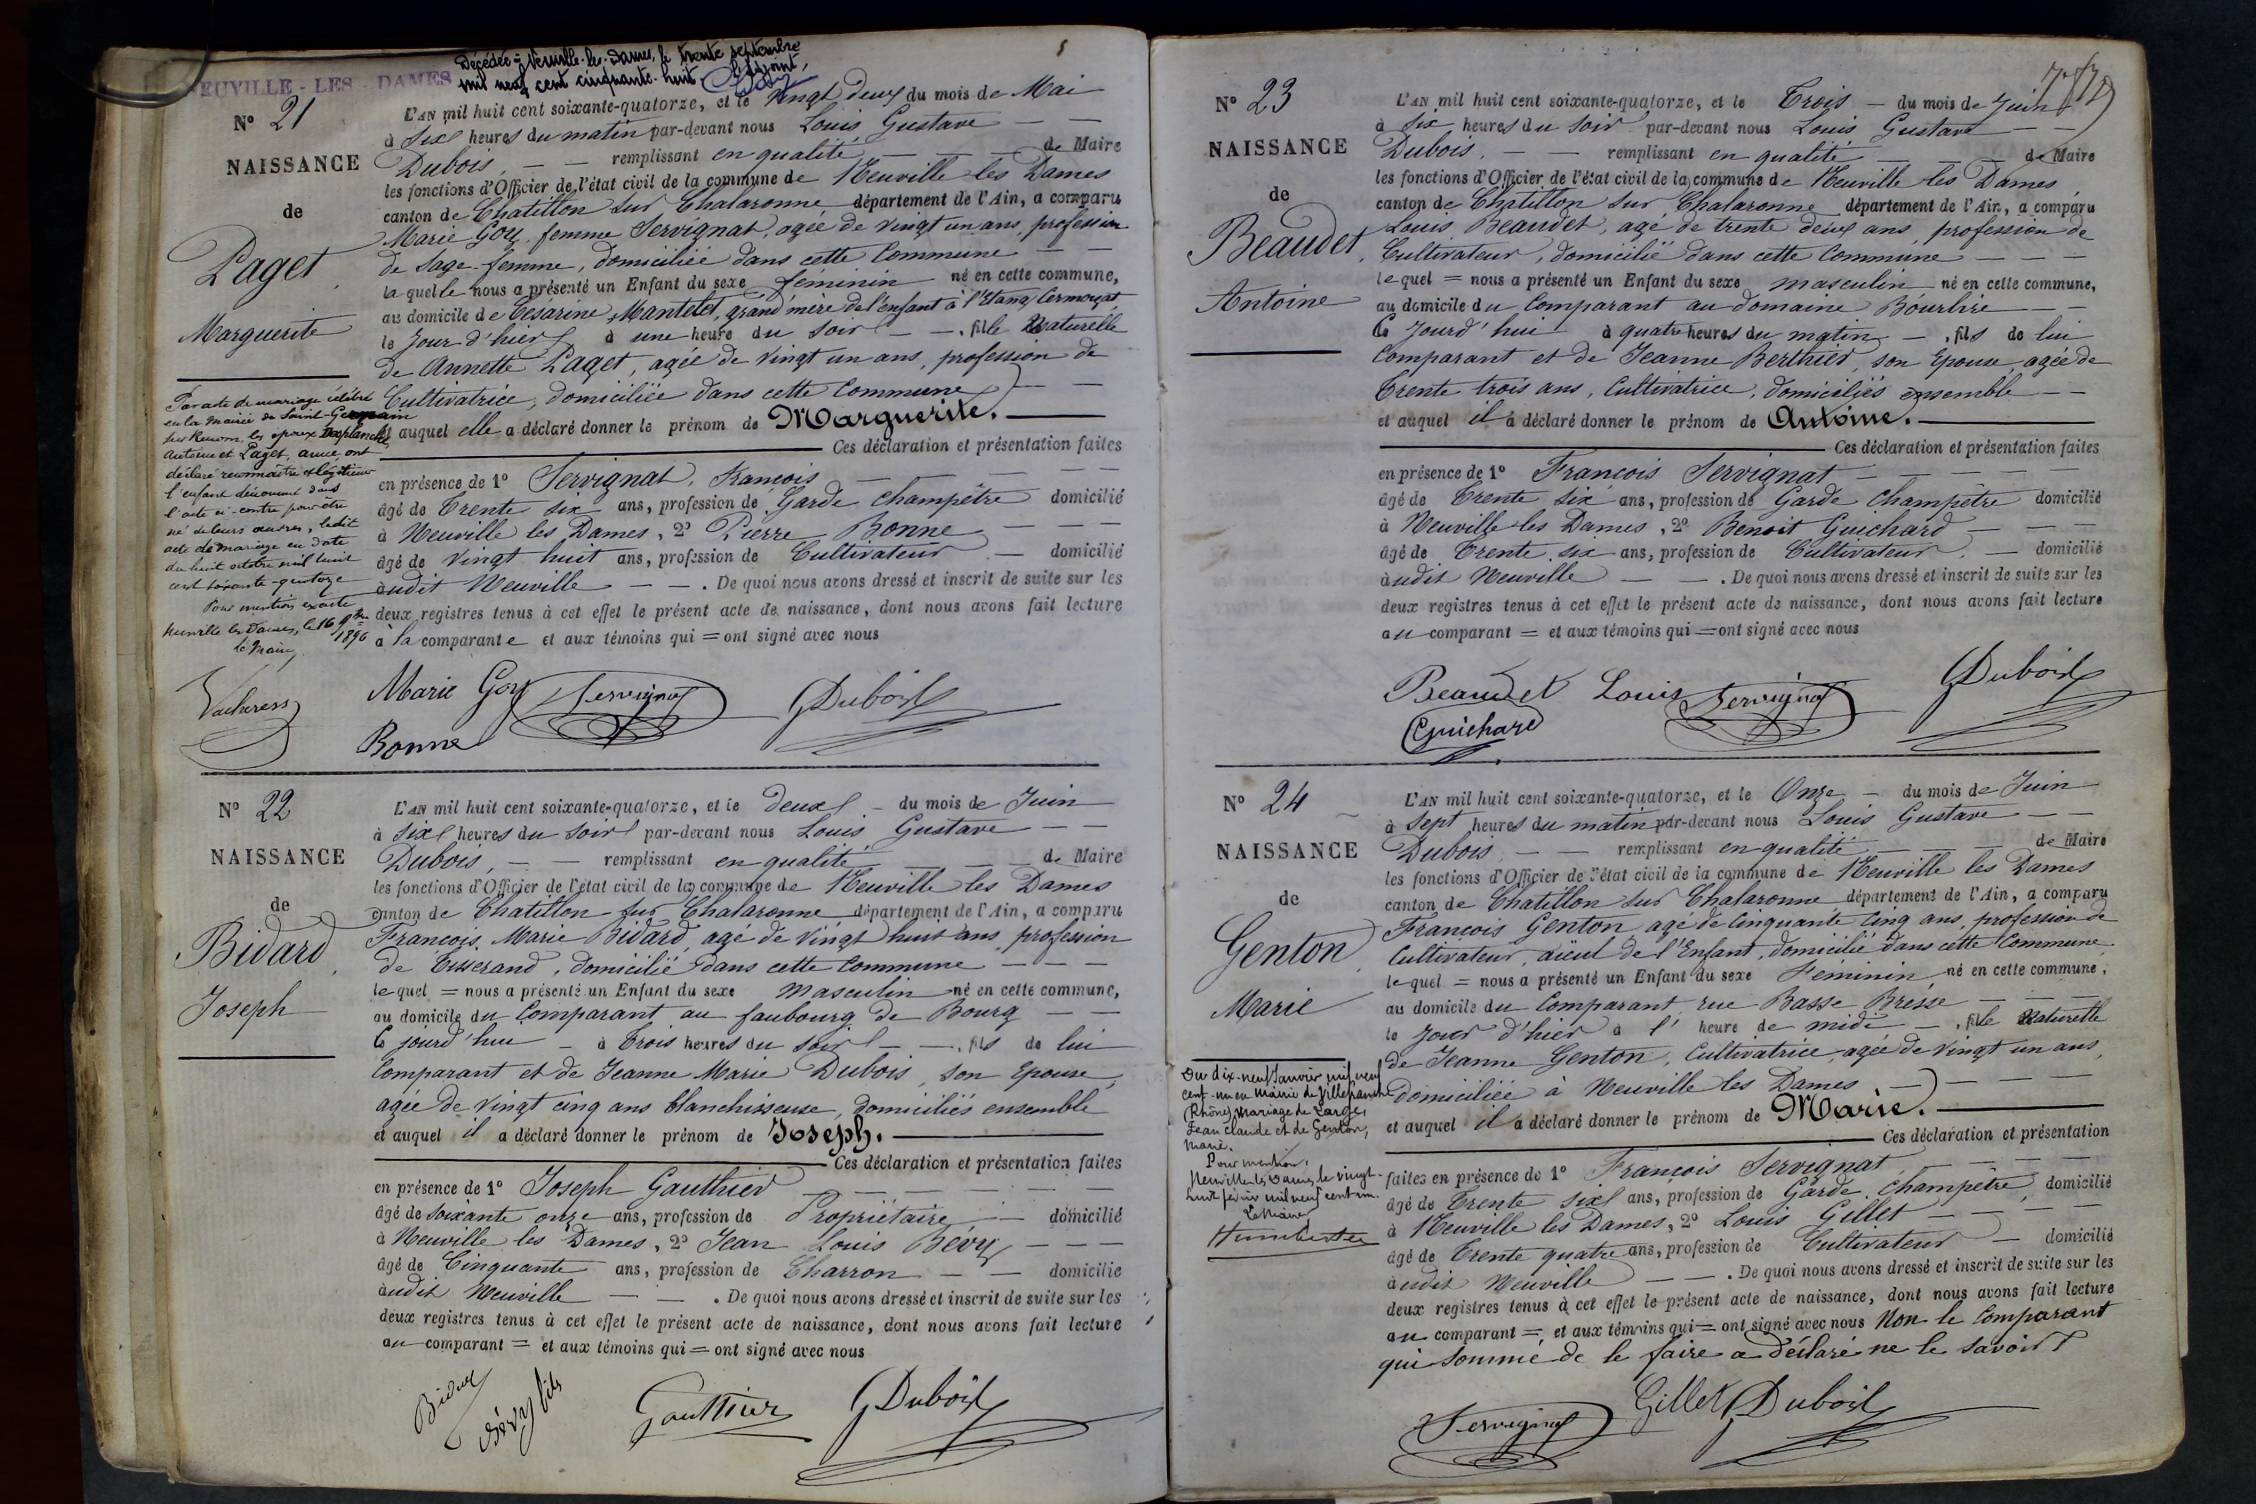 NEUVILLE - LES - DAMES
Décédée à Neuville-les-Dames, le trente septembre
mil neuf cent cinquante-huit. L'adjoint,
N° 21
NAISSANCE
de
Paget
Marguerite
Par acte de mariage célébré
en la Mairie de Saint-Germain
sur Renom, les époux Desplanches
Antoine et Paget, Annette, ont
déclaré reconnaître & légitimer
l'enfant dénommé dans
l'acte ci-contre pour être
né de leurs œuvres, ledit
acte de mariage en date
du huit octobre mil huit
cent soixante-quatorze
Pour mention exacte
Neuville les Dames, le 16 9bre
1896
le Maire,
L'AN mil huit cent soixante-quatorze, et le vingt deux du mois de Mai
à Six heures du matin par-devant nous Louis Gustave
Dubois, remplissant en qualité de Maire
les fonctions d'Officier de l'état civil de la commune de Neuville les Dames
canton de Chatillon sur Chalaronne département de l'Ain, a comparu
Marie Goy, femme Servignat, agée de vingt un ans, profession
de Sage-femme, domiciliée dans cette Commune
la quelle nous a présenté un Enfant du sexe féminin né en cette commune,
au domicile de Césarine Mantelet, grand'mère de l'enfant à l'Etang Cermouzat
le Jour d'hier à une heure du soir, fille Naturelle
de Annette Paget, agée de vingt un ans, profession de
Cultivatrice, domiciliée dans cette Commune
et auquel elle a déclaré donner le prénom de Marguerite.
Ces déclaration et présentation faites
en présence de 1° Servignat, François
âgé de Trente six ans, profession de Garde champêtre domicilié
à Neuville les Dames, 2° Pierre Bonne
âgé de vingt huit ans, profession de Cultivateur domicilié
audit Neuville. De quoi nous avons dressé et inscrit de suite sur les
deux registres tenus à cet effet le présent acte de naissance, dont nous avons fait lecture
à la comparante et aux témoins qui = ont signé avec nous
Marie Goy Servignat GDubois
Bonne
N° 22
NAISSANCE
de
Bidard
Joseph
L'AN mil huit cent soixante-quatorze, et le deux du mois de Juin
à Six heures du soir par-devant nous Louis Gustave
Dubois, remplissant en qualité de Maire
les fonctions d'Officier de l'état civil de la commune de Neuville les Dames
canton de Chatillon sur Chalaronne département de l'Ain, a comparu
François, Marie Bidard, agé de vingt huit ans, profession
de Tisserand, domicilié dans cette Commune
le quel = nous a présenté un Enfant du sexe Masculin né en cette commune,
au domicile du Comparant au faubourg de Bourg
Ce jourd'hui à Trois heures du soir, fils de lui
Comparant et de Jeanne Marie Dubois, son Epouse,
agée de vingt cinq ans blanchisseuse, domiciliés ensemble
et auquel il a déclaré donner le prénom de Joseph.
Ces déclaration et présentation faites
en présence de 1° Joseph Gauthier
âgé de soixante onze ans, profession de Propriétaire domicilié
à Neuville les Dames, 2° Jean Louis Bévy
âgé de Cinquante ans, profession de Charron domicilié
audit Neuville. De quoi nous avons dressé et inscrit de suite sur les
deux registres tenus à cet effet le présent acte de naissance, dont nous avons fait lecture
au comparant = et aux témoins qui = ont signé avec nous
Bidard Bévy fils Gauthier GDubois
N° 23
NAISSANCE
de
Beaudet,
Antoine
L'AN mil huit cent soixante-quatorze, et le Trois du mois de Juin
à six heures du soir par-devant nous Louis Gustave
Dubois, remplissant en qualité de Maire
les fonctions d'Officier de l'état civil de la commune de Neuville les Dames,
canton de Chatillon sur Chalaronne département de l'Ain, a comparu
Louis Beaudet, agé de trente deux ans, profession de
Cultivateur, domicilié dans cette Commune
le quel = nous a présenté un Enfant du sexe masculin né en cette commune,
au domicile du Comparant au domaine Bourlire
Ce Jourd'hui à quatre heures du matin, fils de lui
Comparant et de Jeanne Berthier, son Epouse, agée de
Trente trois ans, Cultivatrice, domiciliés ensemble
et auquel il a déclaré donner le prénom de Antoine.
Ces déclaration et présentation faites
en présence de 1° François Servignat
âgé de Trente six ans, profession de Garde champêtre domicilié
à Neuville les Dames, 2° Benoit Guichard
âgé de Trente six ans, profession de Cultivateur, domicilié
audit Neuville. De quoi nous avons dressé et inscrit de suite sur les
deux registres tenus à cet effet le présent acte de naissance, dont nous avons fait lecture
au comparant = et aux témoins qui = ont signé avec nous
Beaudet Louis Servignat GDubois
Guichard
N° 24
NAISSANCE
de
Genton,
Marie
Du dix-neuf Janvier mil neuf
cent-un en Mairie de Villefranche
(Rhône) Mariage de Large,
Jean Claude et de Genton,
Marie.
Pour mention.
Neuville les Dames, le vingt-
huit février mil neuf cent un.
Le Maire
L'AN mil huit cent soixante-quatorze, et le Onze du mois de Juin
à Sept heures du matin par-devant nous Louis Gustave
Dubois remplissant en qualité de Maire
les fonctions d'Officier de l'état civil de la commune de Neuville les Dames
canton de Chatillon sur Chalaronne département de l'Ain, a comparu
François Genton agé de Cinquante cinq ans, profession de
Cultivateur, aïeul de l'Enfant, domicilié dans cette Commune,
le quel = nous a présenté un Enfant du sexe Féminin né en cette commune,
au domicile du Comparant rue Basse Bresse
le Jour d'hier à l'heure de midi, fille Naturelle
de Jeanne Genton, Cultivatrice, agée de vingt un ans,
domiciliée à Neuville les Dames
et auquel il a déclaré donner le prénom de Marie.
Ces déclaration et présentation
faites en présence de 1° François Servignat
âgé de Trente six ans, profession de Garde champêtre, domicilié
à Neuville les Dames, 2° Louis Gillet
âgé de Trente quatre ans, profession de Cultivateur domicilié
audit Neuville. De quoi nous avons dressé et inscrit de suite sur les
deux registres tenus à cet effet le présent acte de naissance, dont nous avons fait lecture
au comparant = et aux témoins qui = ont signé avec nous Non le Comparant
qui Sommé de le faire a déclaré ne le savoir
Servignat Gillet GDubois